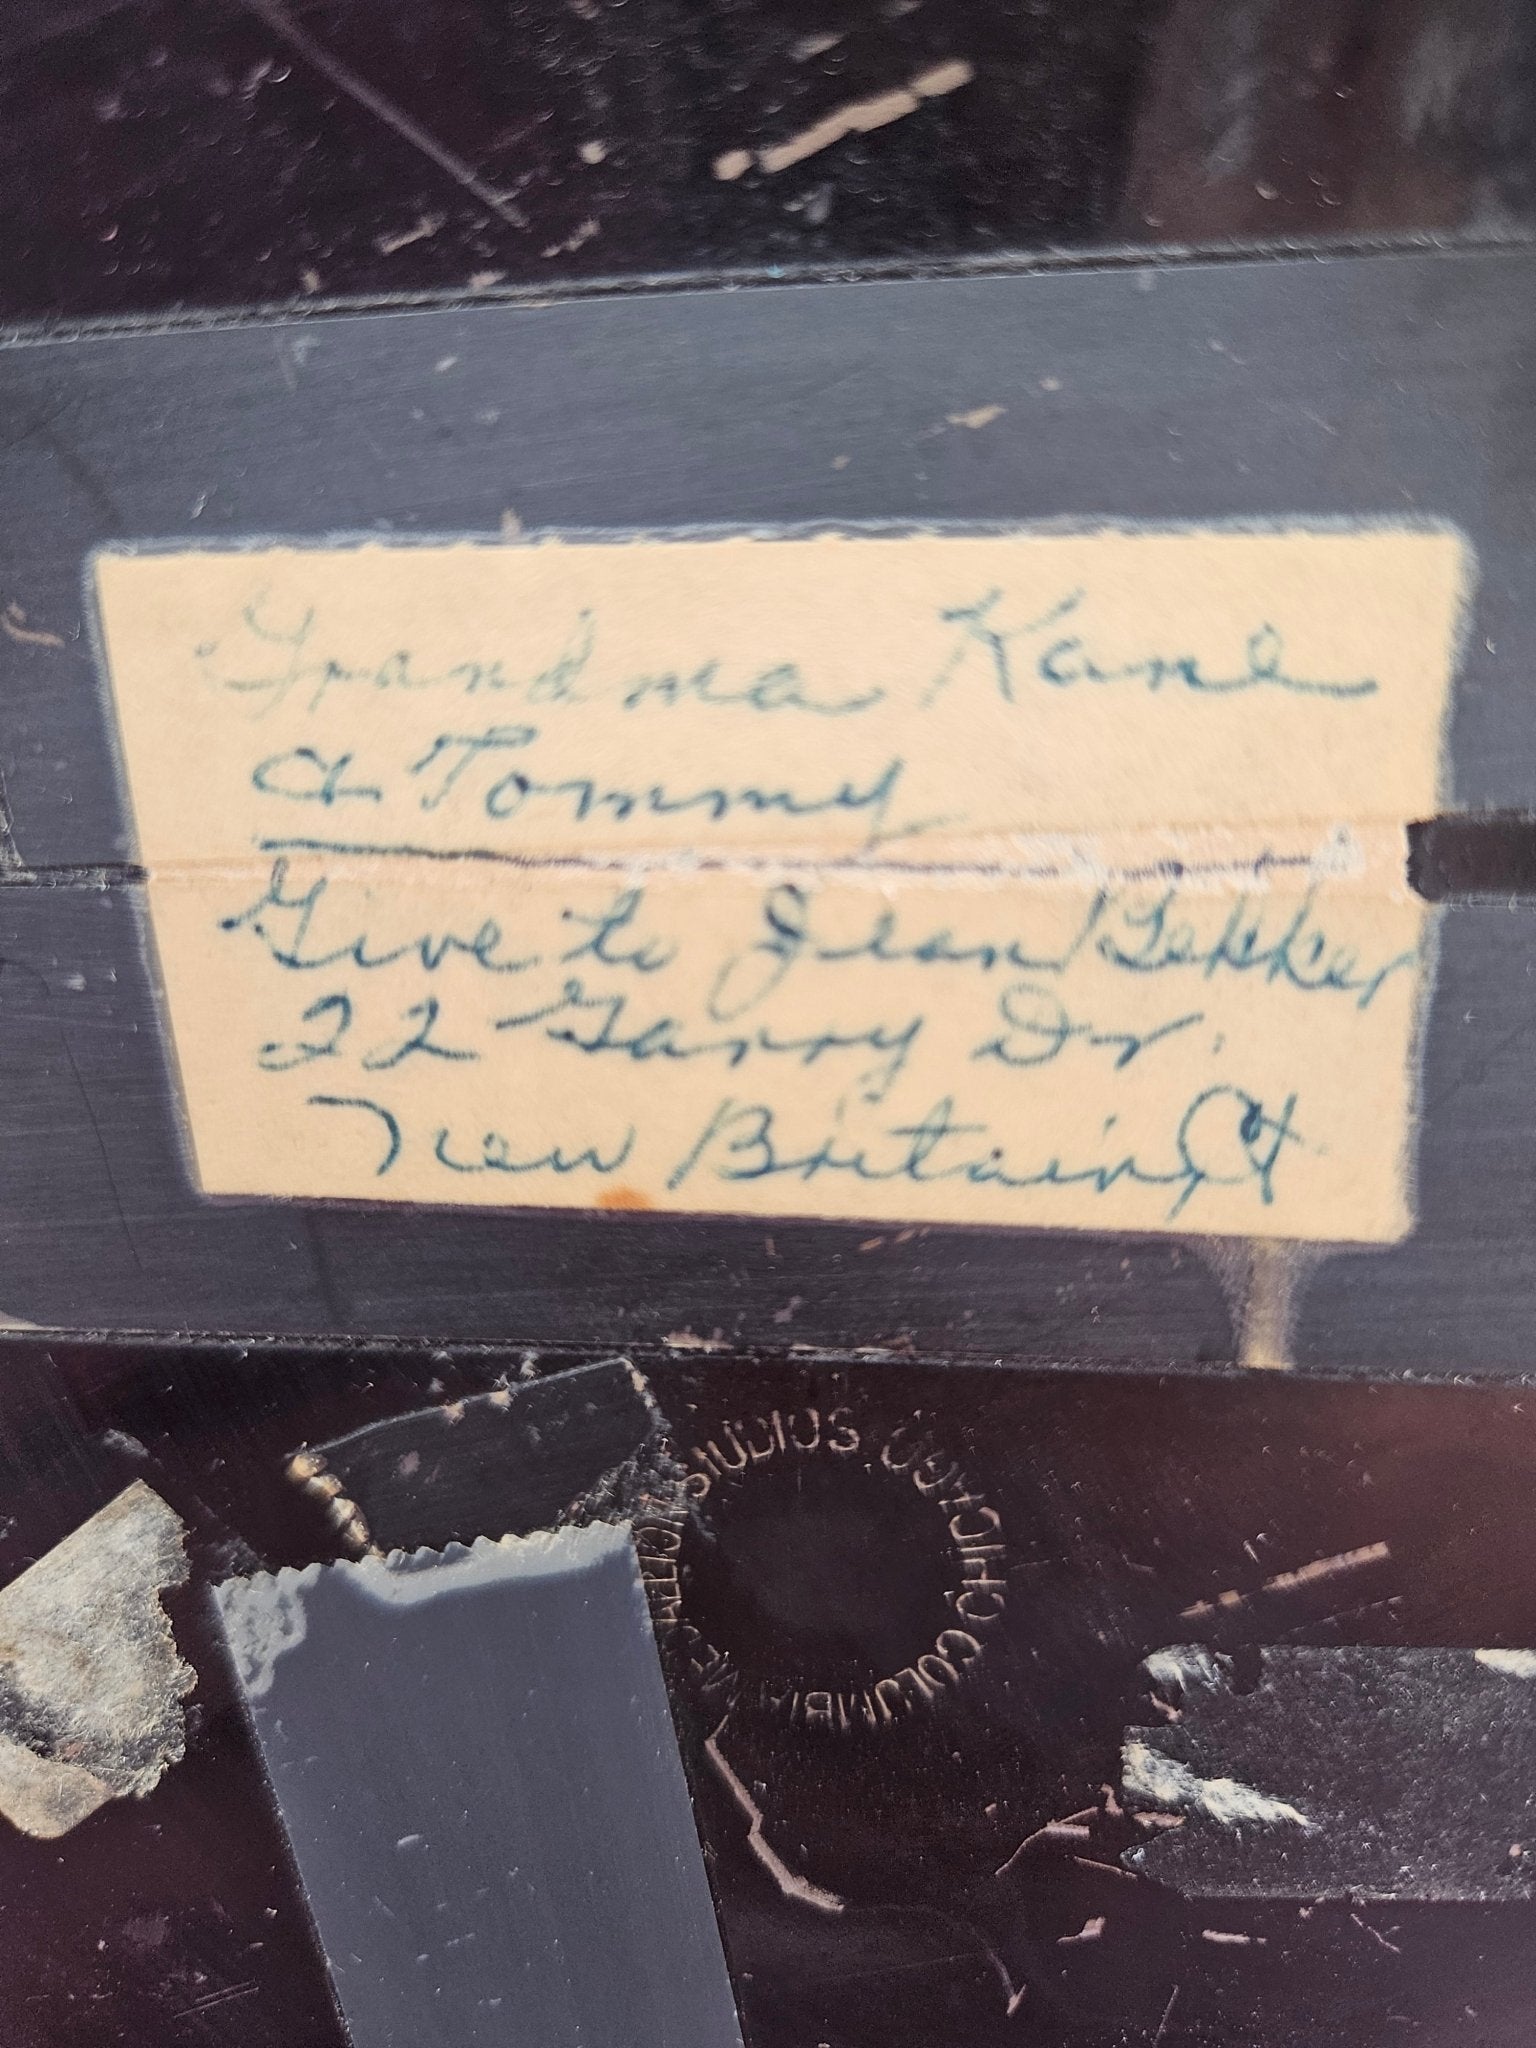 Grandma Kane
a Tommy
Give to Jean Bekker
22 Garry Dr.
New Britain, Ct
METALLIC STUDIOS CHICAGO COLUMBIA